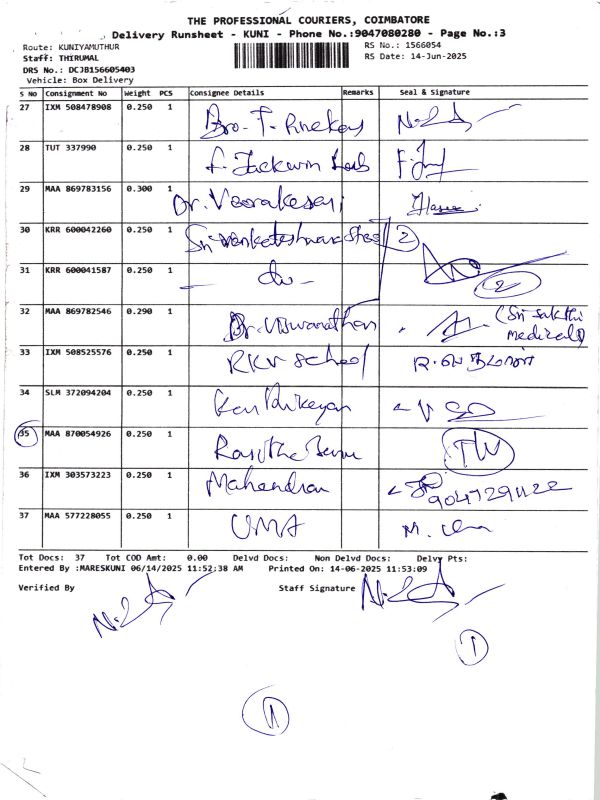 THE PROFESSIONAL COURIERS, COIMBATORE
Delivery Runsheet - KUNI - Phone No.:9047080280 - Page No.:3
Route: KUNIYAMUTHUR RS No.: 1566054
Staff: THIRUMAL RS Date: 14-Jun-2025
DRS No.: DCJB156605403
Vehicle: Box Delivery
S No Consignment No Weight PCS Consignee Details Remarks Seal & Signature
27 IXM 508478908 0.250 1 Bro. F.
28 TUT 337990 0.250 1 F. Jackwin
29 MAA 869783156 0.300 1 Dr. Veerakesari
30 KRR 600042260 0.250 1 Sri venkateshwara 2
31 KRR 600041587 0.250 1 - do - 2
32 MAA 869782546 0.290 1 Dr. Viswanathan (Sri Sakthi Medical)
33 IXM 508525576 0.250 1 RKV School
34 SLM 372094204 0.250 1 Karthikeyan
35 MAA 870054926 0.250 1 TW
36 IXM 303573223 0.250 1 Mahendran 9047291122
37 MAA 577228055 0.250 1 UMA M. Uma
Tot Docs: 37 Tot COD Amt: 0.00 Delvd Docs: Non Delvd Docs: Delvy Pts:
Entered By :MARESKUNI 06/14/2025 11:52:38 AM Printed On: 14-06-2025 11:53:09
Verified By Staff Signature
1
1